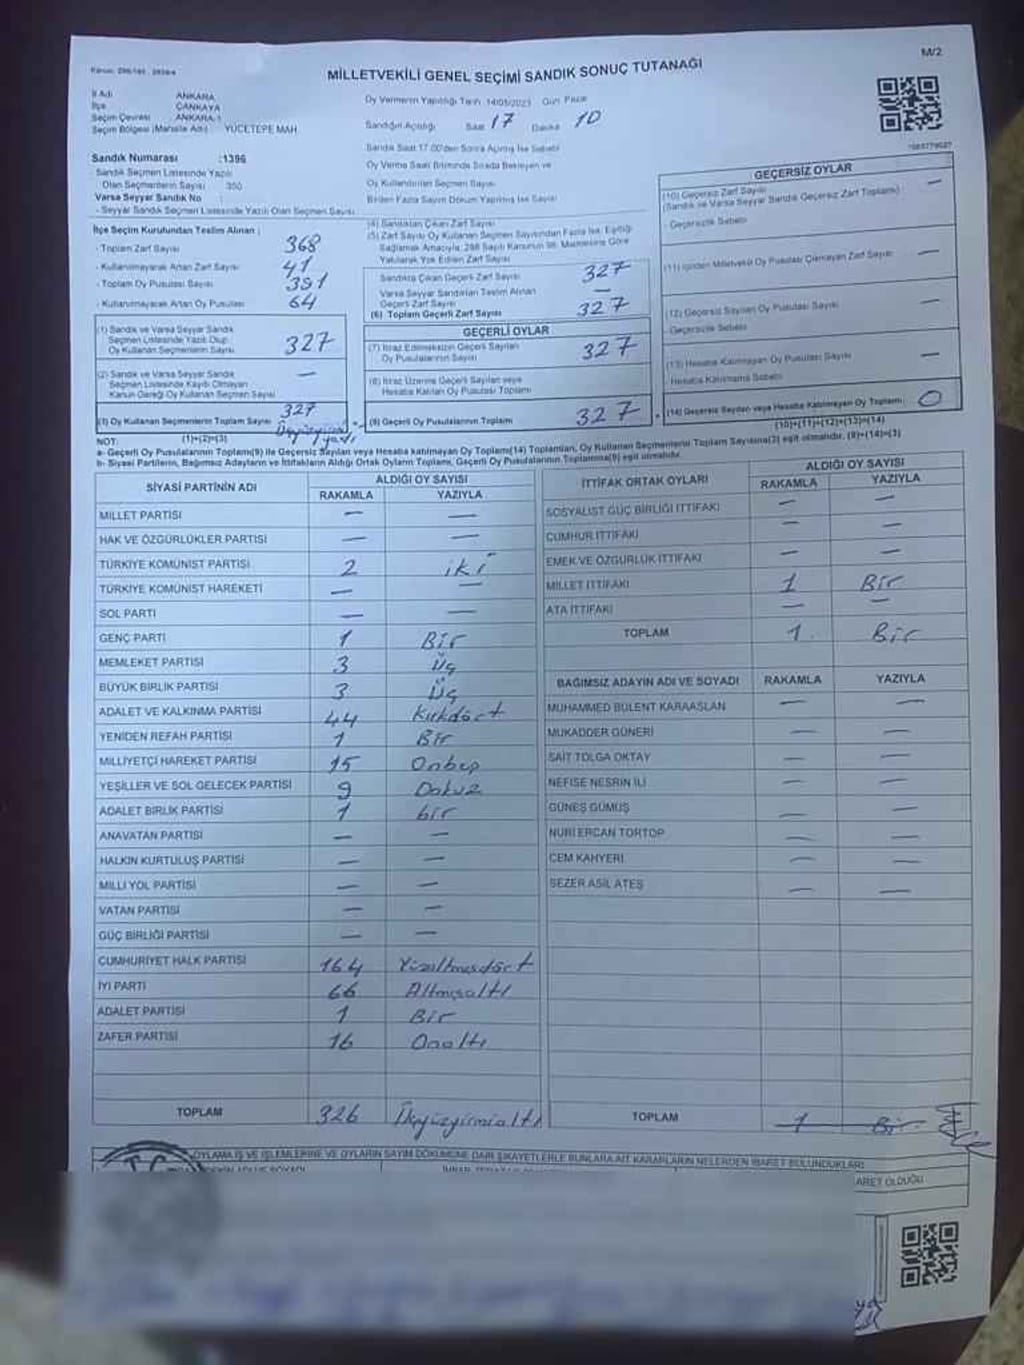 M/2
MİLLETVEKİLİ GENEL SEÇİMİ SANDIK SONUÇ TUTANAĞI
İl Adı ANKARA
İlçe ÇANKAYA
Seçim Çevresi ANKARA-1
Seçim Bölgesi (Mahalle Adı) YÜCETEPE MAH.
Oy Vermenin Yapıldığı Tarih 14/05/2023 Gün Pazar
Sandığın Açıldığı Saat 17 Dakika 10
Sandık Numarası :1396
- Sandık Seçmen Listesinde Yazılı
Olan Seçmenlerin Sayısı 350
Varsa Seyyar Sandık No
- Seyyar Sandık Seçmen Listesinde Yazılı Olan Seçmen Sayısı
Sandık Saat 17.00'den Sonra Açılmış İse Sebebi
Oy Verme Saati Bitiminde Sırada Bekleyen ve
Oy Kullandırılan Seçmen Sayısı
Birden Fazla Sayım Döküm Yapılmış İse Sayısı
İlçe Seçim Kurulundan Teslim Alınan ;
- Toplam Zarf Sayısı 368
- Kullanılmayarak Artan Zarf Sayısı 41
- Toplam Oy Pusulası Sayısı 391
- Kullanılmayarak Artan Oy Pusulası 64
(1) Sandık ve Varsa Seyyar Sandık
Seçmen Listesinde Yazılı Olup
Oy Kullanan Seçmenlerin Sayısı 327
(2) Sandık ve Varsa Seyyar Sandık
Seçmen Listesinde Kayıtlı Olmayan
Kanun Gereği Oy Kullanan Seçmen Sayısı —
(3) Oy Kullanan Seçmenlerin Toplam Sayısı 327
(1)+(2)=(3)
(4) Sandıktan Çıkan Zarf Sayısı
(5) Zarf Sayısı Oy Kullanan Seçmen Sayısından Fazla İse, Eşitliği
Sağlamak Amacıyla, 298 Sayılı Kanunun 98. Maddesine Göre
Yakılarak Yok Edilen Zarf Sayısı
Sandıkta Çıkan Geçerli Zarf Sayısı 327
Varsa Seyyar Sandıktan Teslim Alınan
Geçerli Zarf Sayısı —
(6) Toplam Geçerli Zarf Sayısı 327
GEÇERLİ OYLAR
(7) İtiraz Edilmeksizin Geçerli Sayılan
Oy Pusulalarının Sayısı 327
(8) İtiraz Üzerine Geçerli Sayılan veya
Hesaba Katılan Oy Pusulası Toplamı
(9) Geçerli Oy Pusulalarının Toplamı 327
GEÇERSİZ OYLAR
(10) Geçersiz Zarf Sayısı —
(Sandık ve Varsa Seyyar Sandık Geçersiz Zarf Toplamı)
- Geçersizlik Sebebi
(11) İçinden Milletvekili Oy Pusulası Çıkmayan Zarf Sayısı —
(12) Geçersiz Sayılan Oy Pusulası Sayısı —
- Geçersizlik Sebebi
(13) Hesaba Katılmayan Oy Pusulası Sayısı —
- Hesaba Katılmama Sebebi
(14) Geçersiz Sayılan veya Hesaba Katılmayan Oy Toplamı 0
(10)+(11)+(12)+(13)=(14)
NOT:
a- Geçerli Oy Pusulalarının Toplamı(9) ile Geçersiz Sayılan veya Hesaba katılmayan Oy Toplamı(14) Toplamları, Oy Kullanan Seçmenlerin Toplam Sayısına(3) eşit olmalıdır. (9)+(14)=(3)
b- Siyasi Partilerin, Bağımsız Adayların ve İttifakların Aldığı Ortak Oyların Toplamı, Geçerli Oy Pusulalarının Toplamına(9) eşit olmalıdır.
SİYASİ PARTİNİN ADI ALDIĞI OY SAYISI
RAKAMLA YAZIYLA
MİLLET PARTİSİ — —
HAK VE ÖZGÜRLÜKLER PARTİSİ — —
TÜRKİYE KOMÜNİST PARTİSİ 2 iki
TÜRKİYE KOMÜNİST HAREKETİ — —
SOL PARTİ — —
GENÇ PARTİ 1 Bir
MEMLEKET PARTİSİ 3 Üç
BÜYÜK BİRLİK PARTİSİ 3 Üç
ADALET VE KALKINMA PARTİSİ 44 Kırkdört
YENİDEN REFAH PARTİSİ 1 Bir
MİLLİYETÇİ HAREKET PARTİSİ 15 Onbeş
YEŞİLLER VE SOL GELECEK PARTİSİ 9 Dokuz
ADALET BİRLİK PARTİSİ 1 bir
ANAVATAN PARTİSİ — —
HALKIN KURTULUŞ PARTİSİ — —
MİLLİ YOL PARTİSİ — —
VATAN PARTİSİ — —
GÜÇ BİRLİĞİ PARTİSİ — —
CUMHURİYET HALK PARTİSİ 164 Yüzaltmışdört
İYİ PARTİ 66 Altmışaltı
ADALET PARTİSİ 1 Bir
ZAFER PARTİSİ 16 Onaltı
TOPLAM 326 İkiyüzyirmialtı
İTTİFAK ORTAK OYLARI ALDIĞI OY SAYISI
RAKAMLA YAZIYLA
SOSYALİST GÜÇ BİRLİĞİ İTTİFAKI — —
CUMHUR İTTİFAKI — —
EMEK VE ÖZGÜRLÜK İTTİFAKI — —
MİLLET İTTİFAKI 1 Bir
ATA İTTİFAKI — —
TOPLAM 1 Bir
BAĞIMSIZ ADAYIN ADI VE SOYADI RAKAMLA YAZIYLA
MUHAMMED BÜLENT KARAASLAN — —
MUKADDER GÜNERİ — —
SAİT TOLGA OKTAY — —
NEFİSE NESRİN İLİ — —
GÜNEŞ GÜMÜŞ — —
NURİ ERCAN TORTOP — —
CEM KAHYERİ — —
SEZER ASİL ATEŞ — —
TOPLAM 1 Bir
OYLAMA İŞ VE İŞLEMLERİNE VE OYLARIN SAYIM DÖKÜMÜNE DAİR ŞİKAYETLERLE BUNLARA AİT KARARLARIN NELERDEN İBARET BULUNDUKLARI
ARET OLDUĞU